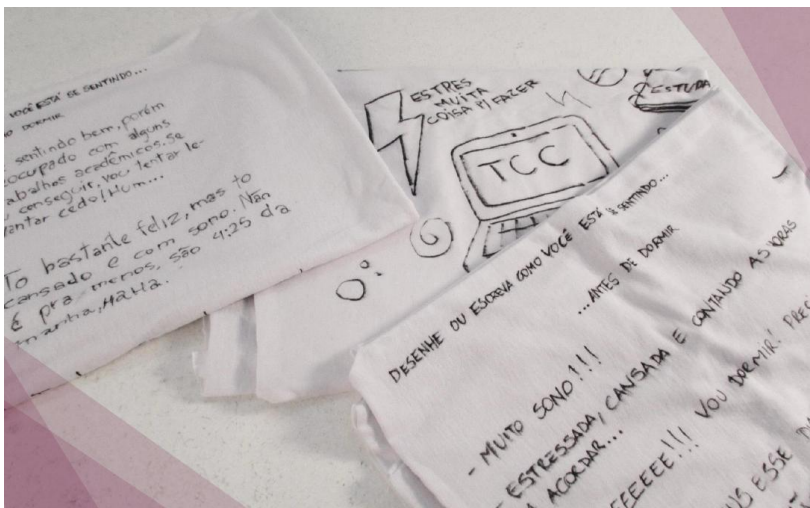 VOCÊ ESTÁ SE SENTINDO...
DORMIR
sentindo bem, porém
ocupado com alguns
abalhos acadêmicos. Se
conseguir, vou tentar le-
antar cedo/Hum...
To bastante feliz, mas to
cansado e com sono. Não
é pra menos, são 4:25 da
manhã, HAHA.
ESTRES
MUITA
COISA P/ FAZER
TCC
ESTUDA
DESENHE OU ESCREVA COMO VOCÊ ESTÁ SE SENTINDO...
...ANTES DE DORMIR
- MUITO SONO!!!
ESTRESSADA, CANSADA E CONTANDO AS HORAS
ACORDAR...
EEEEE!!! VOU DORMIR! PREC
ESSE